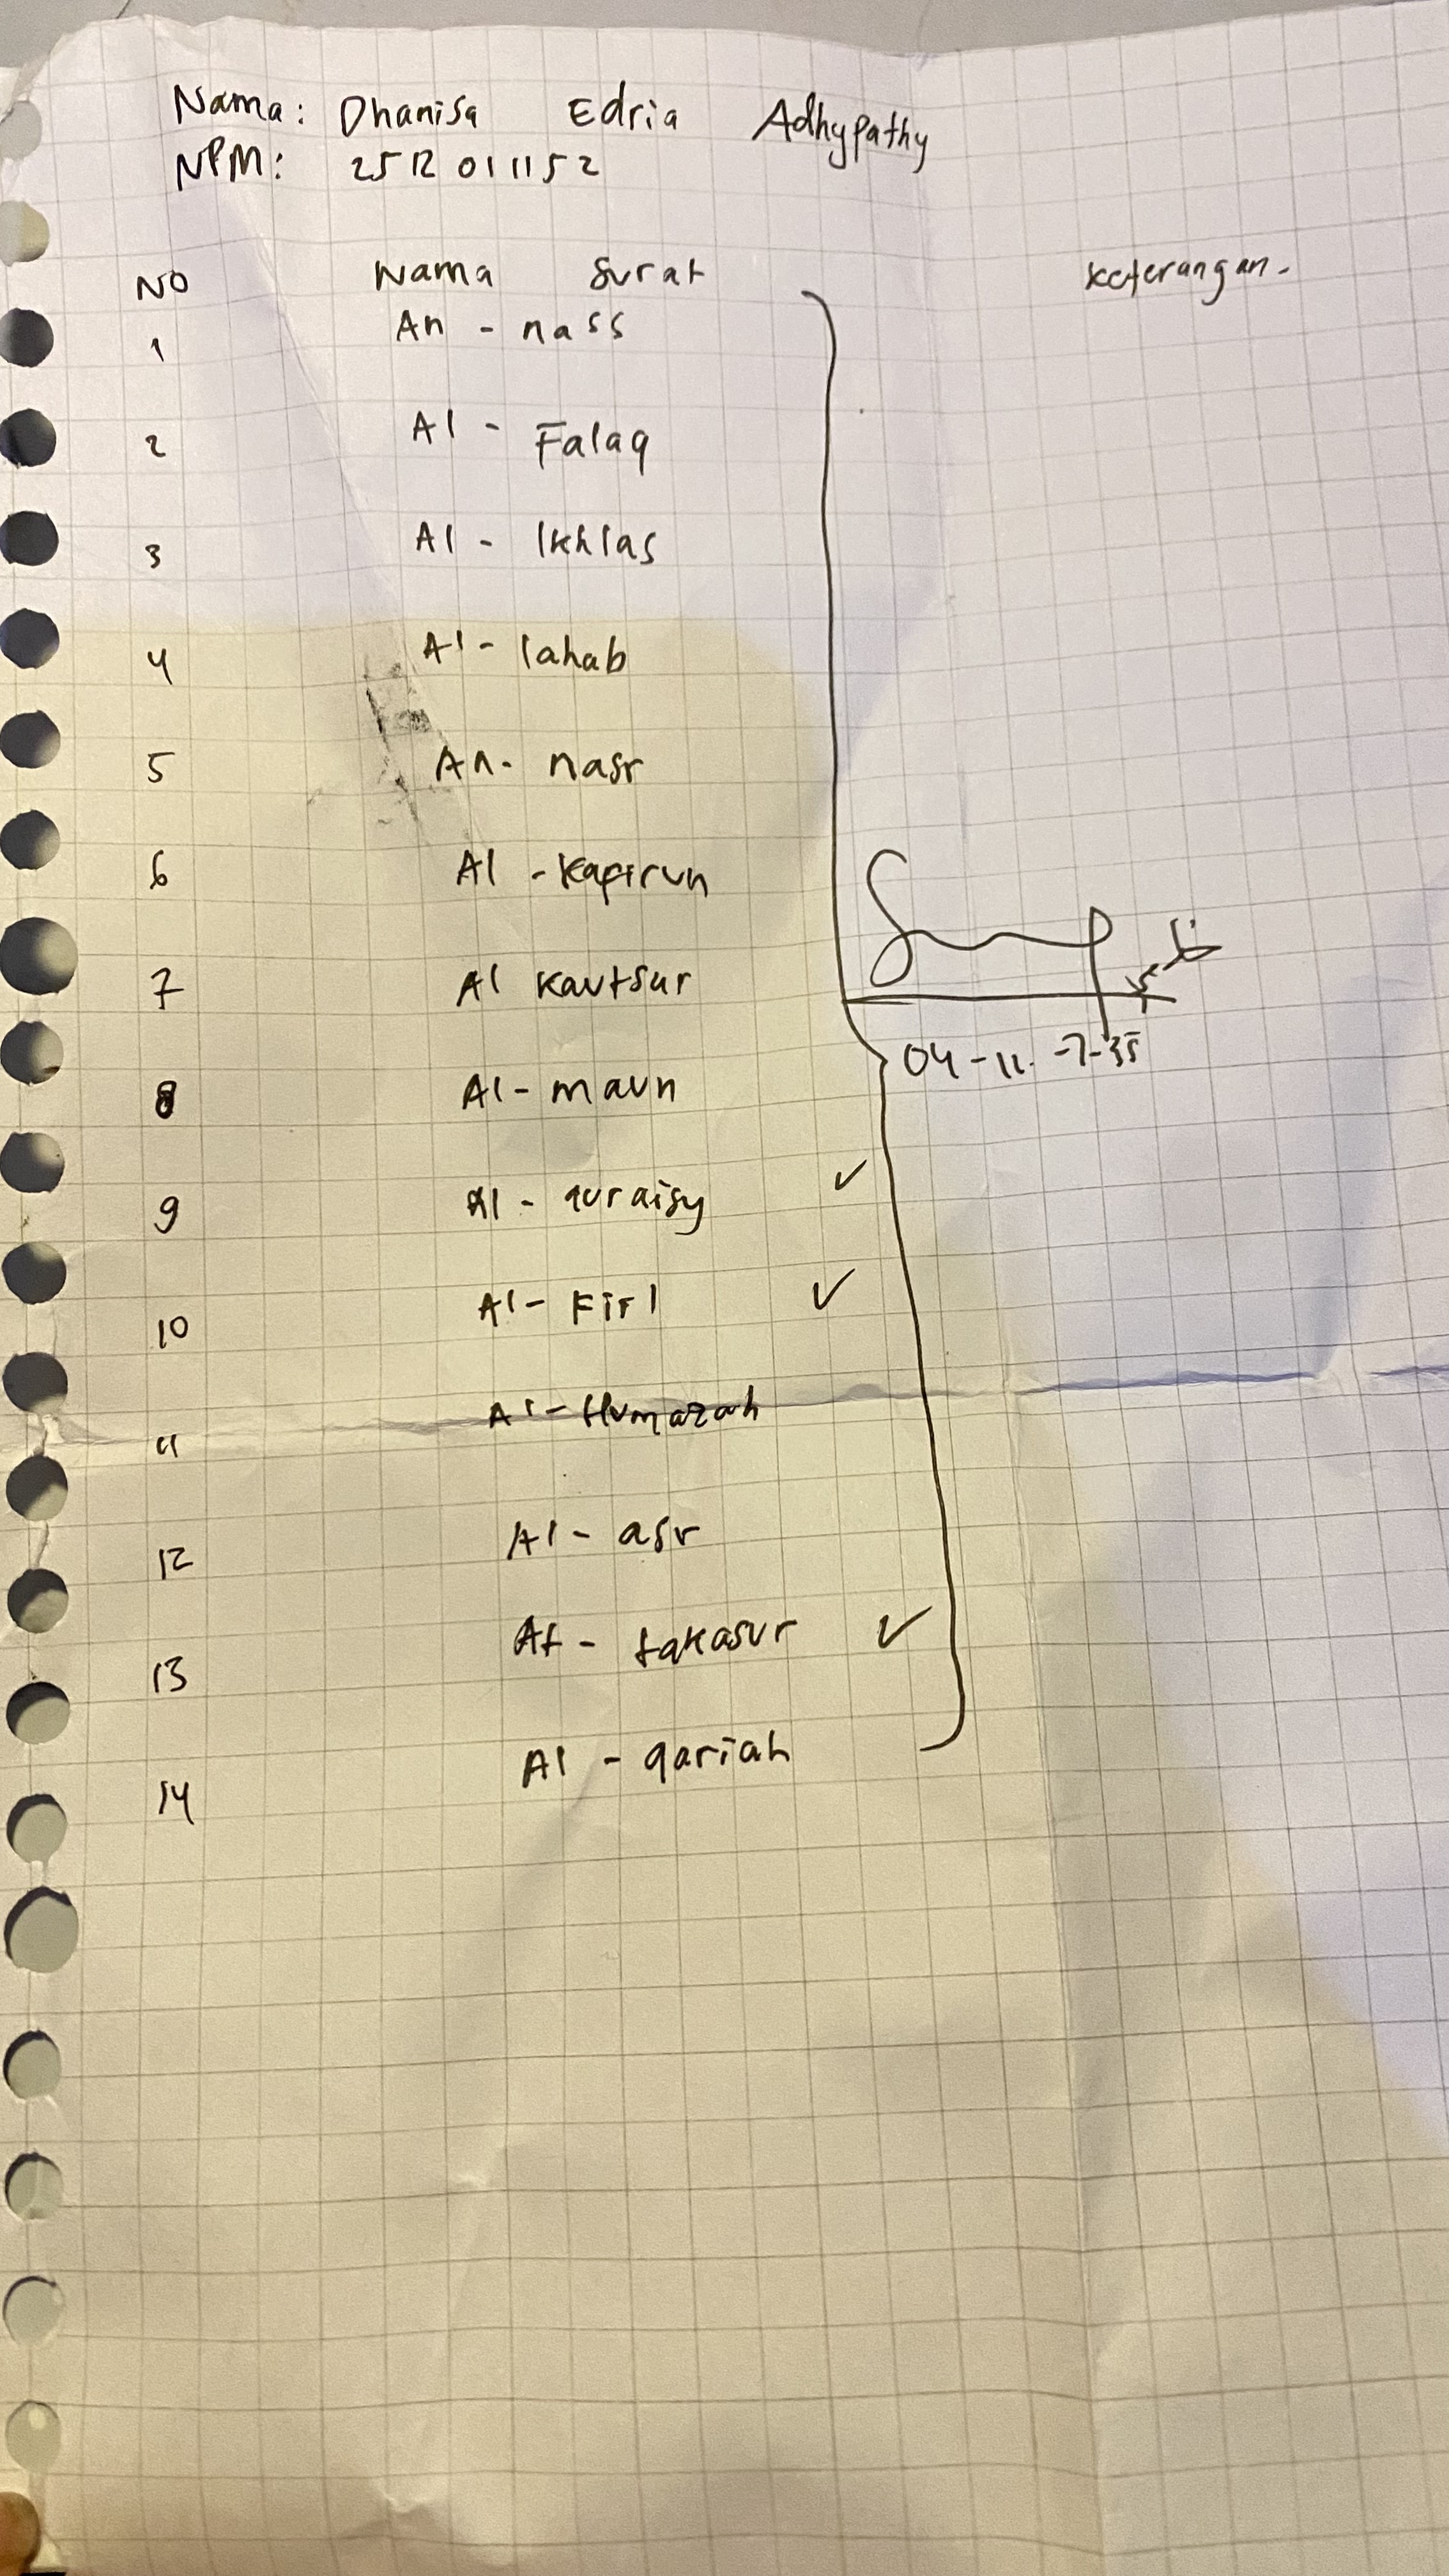 Nama: Dhanisa Edria Adhypathy
NPM: 2512011152
NO Nama Surat Keterangan.
1 An - nass
2 Al - Falaq
3 Al - Ikhlas
4 Al - lahab
5 An - nasr
6 Al - Kafirun
7 Al Kautsur
8 Al - maun
9 Al - quraisy ✓
10 Al - Firl ✓
11 Al - Humazah
12 Al - asr
13 At - takasur ✓
14 Al - qariah
04 - 11.